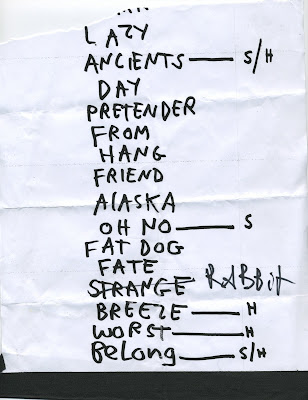 LAZY
ANCIENTS — S/H
DAY
PRETENDER
FROM
HANG
FRIEND
ALASKA
OH NO — S
FAT DOG
FATE
STRANGE RABBIT
BREEZE — H
WORST — H
BELONG — S/H